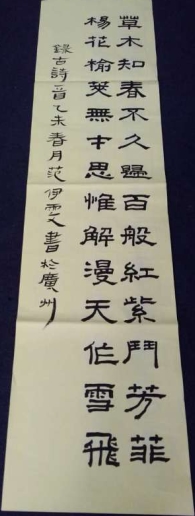 草木知春不久歸百般紅紫鬥芳菲
楊花榆莢無才思惟解漫天作雪飛
錄古詩一首乙未春月范書於廣州